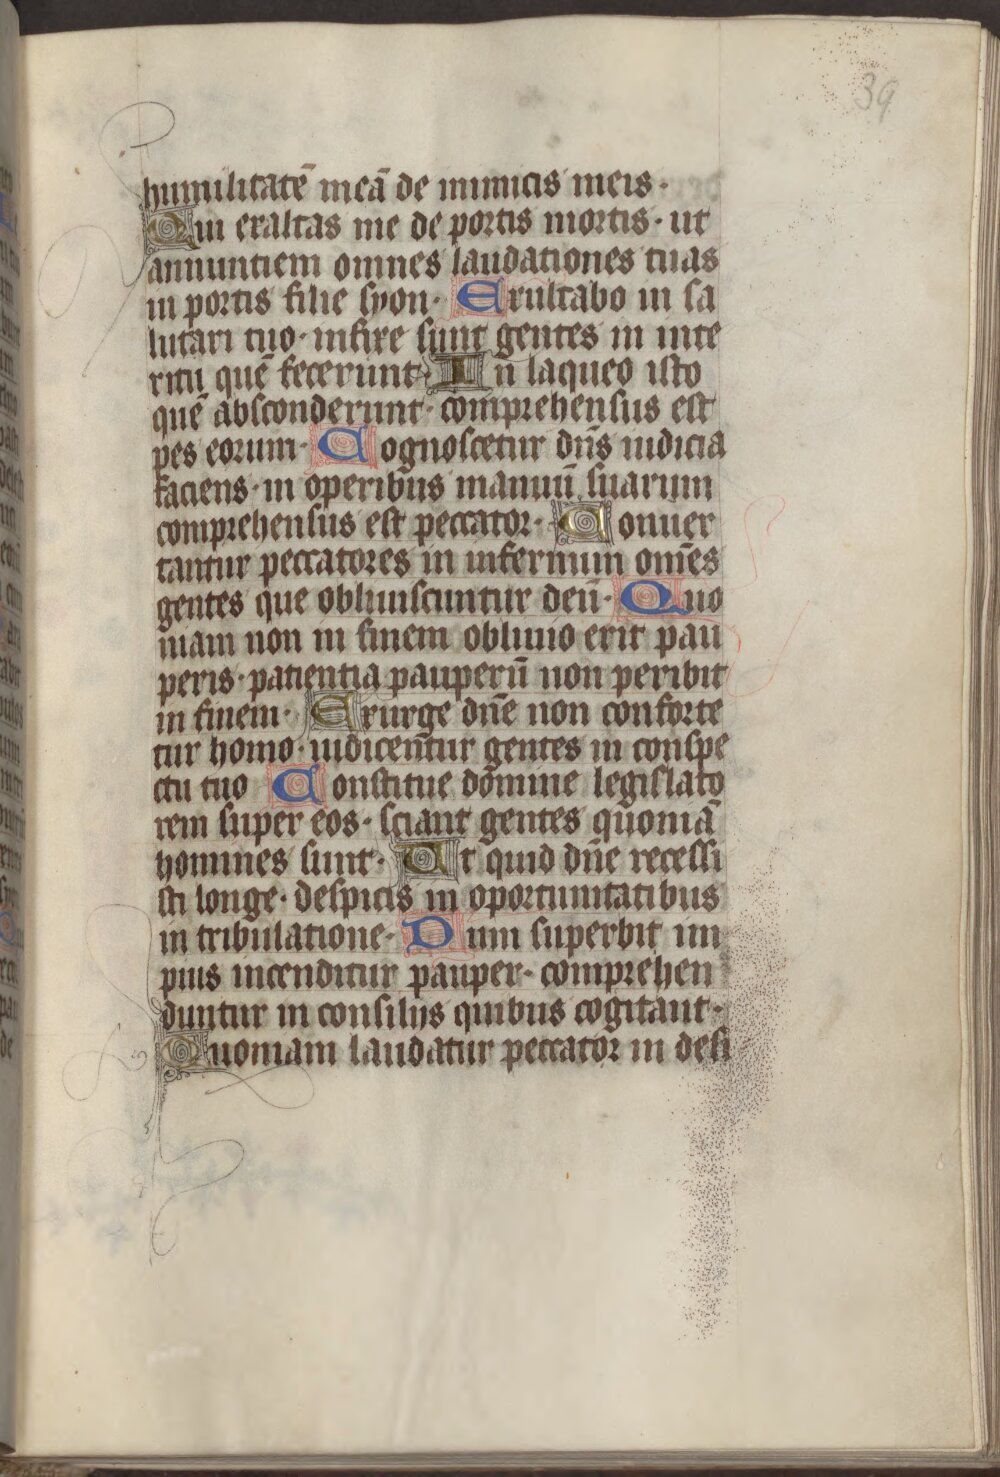 39
humilitatē meā de inimicis meis ·
Qui exaltas me de portis mortis · ut
annunciem omnes laudationes tuas
in portis filie syon · Exultabo in sa
lutari tuo · infixe sunt gentes in inte
ritu quē fecerunt · In laqueo isto
quē absconderunt · comprehensus est
pes eorum · Cognoscetur dn̄s iudicia
faciens · in operibus manuū suarum
comprehensus est peccator · Conuer
tantur peccatores in infernum om̄es
gentes que obliuiscuntur deū · Quo
niam non in finem obliuio erit pau
peris · patientia pauperū non peribit
in finem · Exurge dn̄e non conforte
tur homo · iudicentur gentes in conspe
ctu tuo Constitue domine legislato
rem super eos · sciant gentes quoniā
homines sunt · Ut quid dn̄e recessi
sti longe · despicis in oportunitatibus
in tribulatione · Dum superbit im
pius incenditur pauper · comprehen
duntur in consilijs quibus cogitant ·
Quoniam laudatur peccator in desi